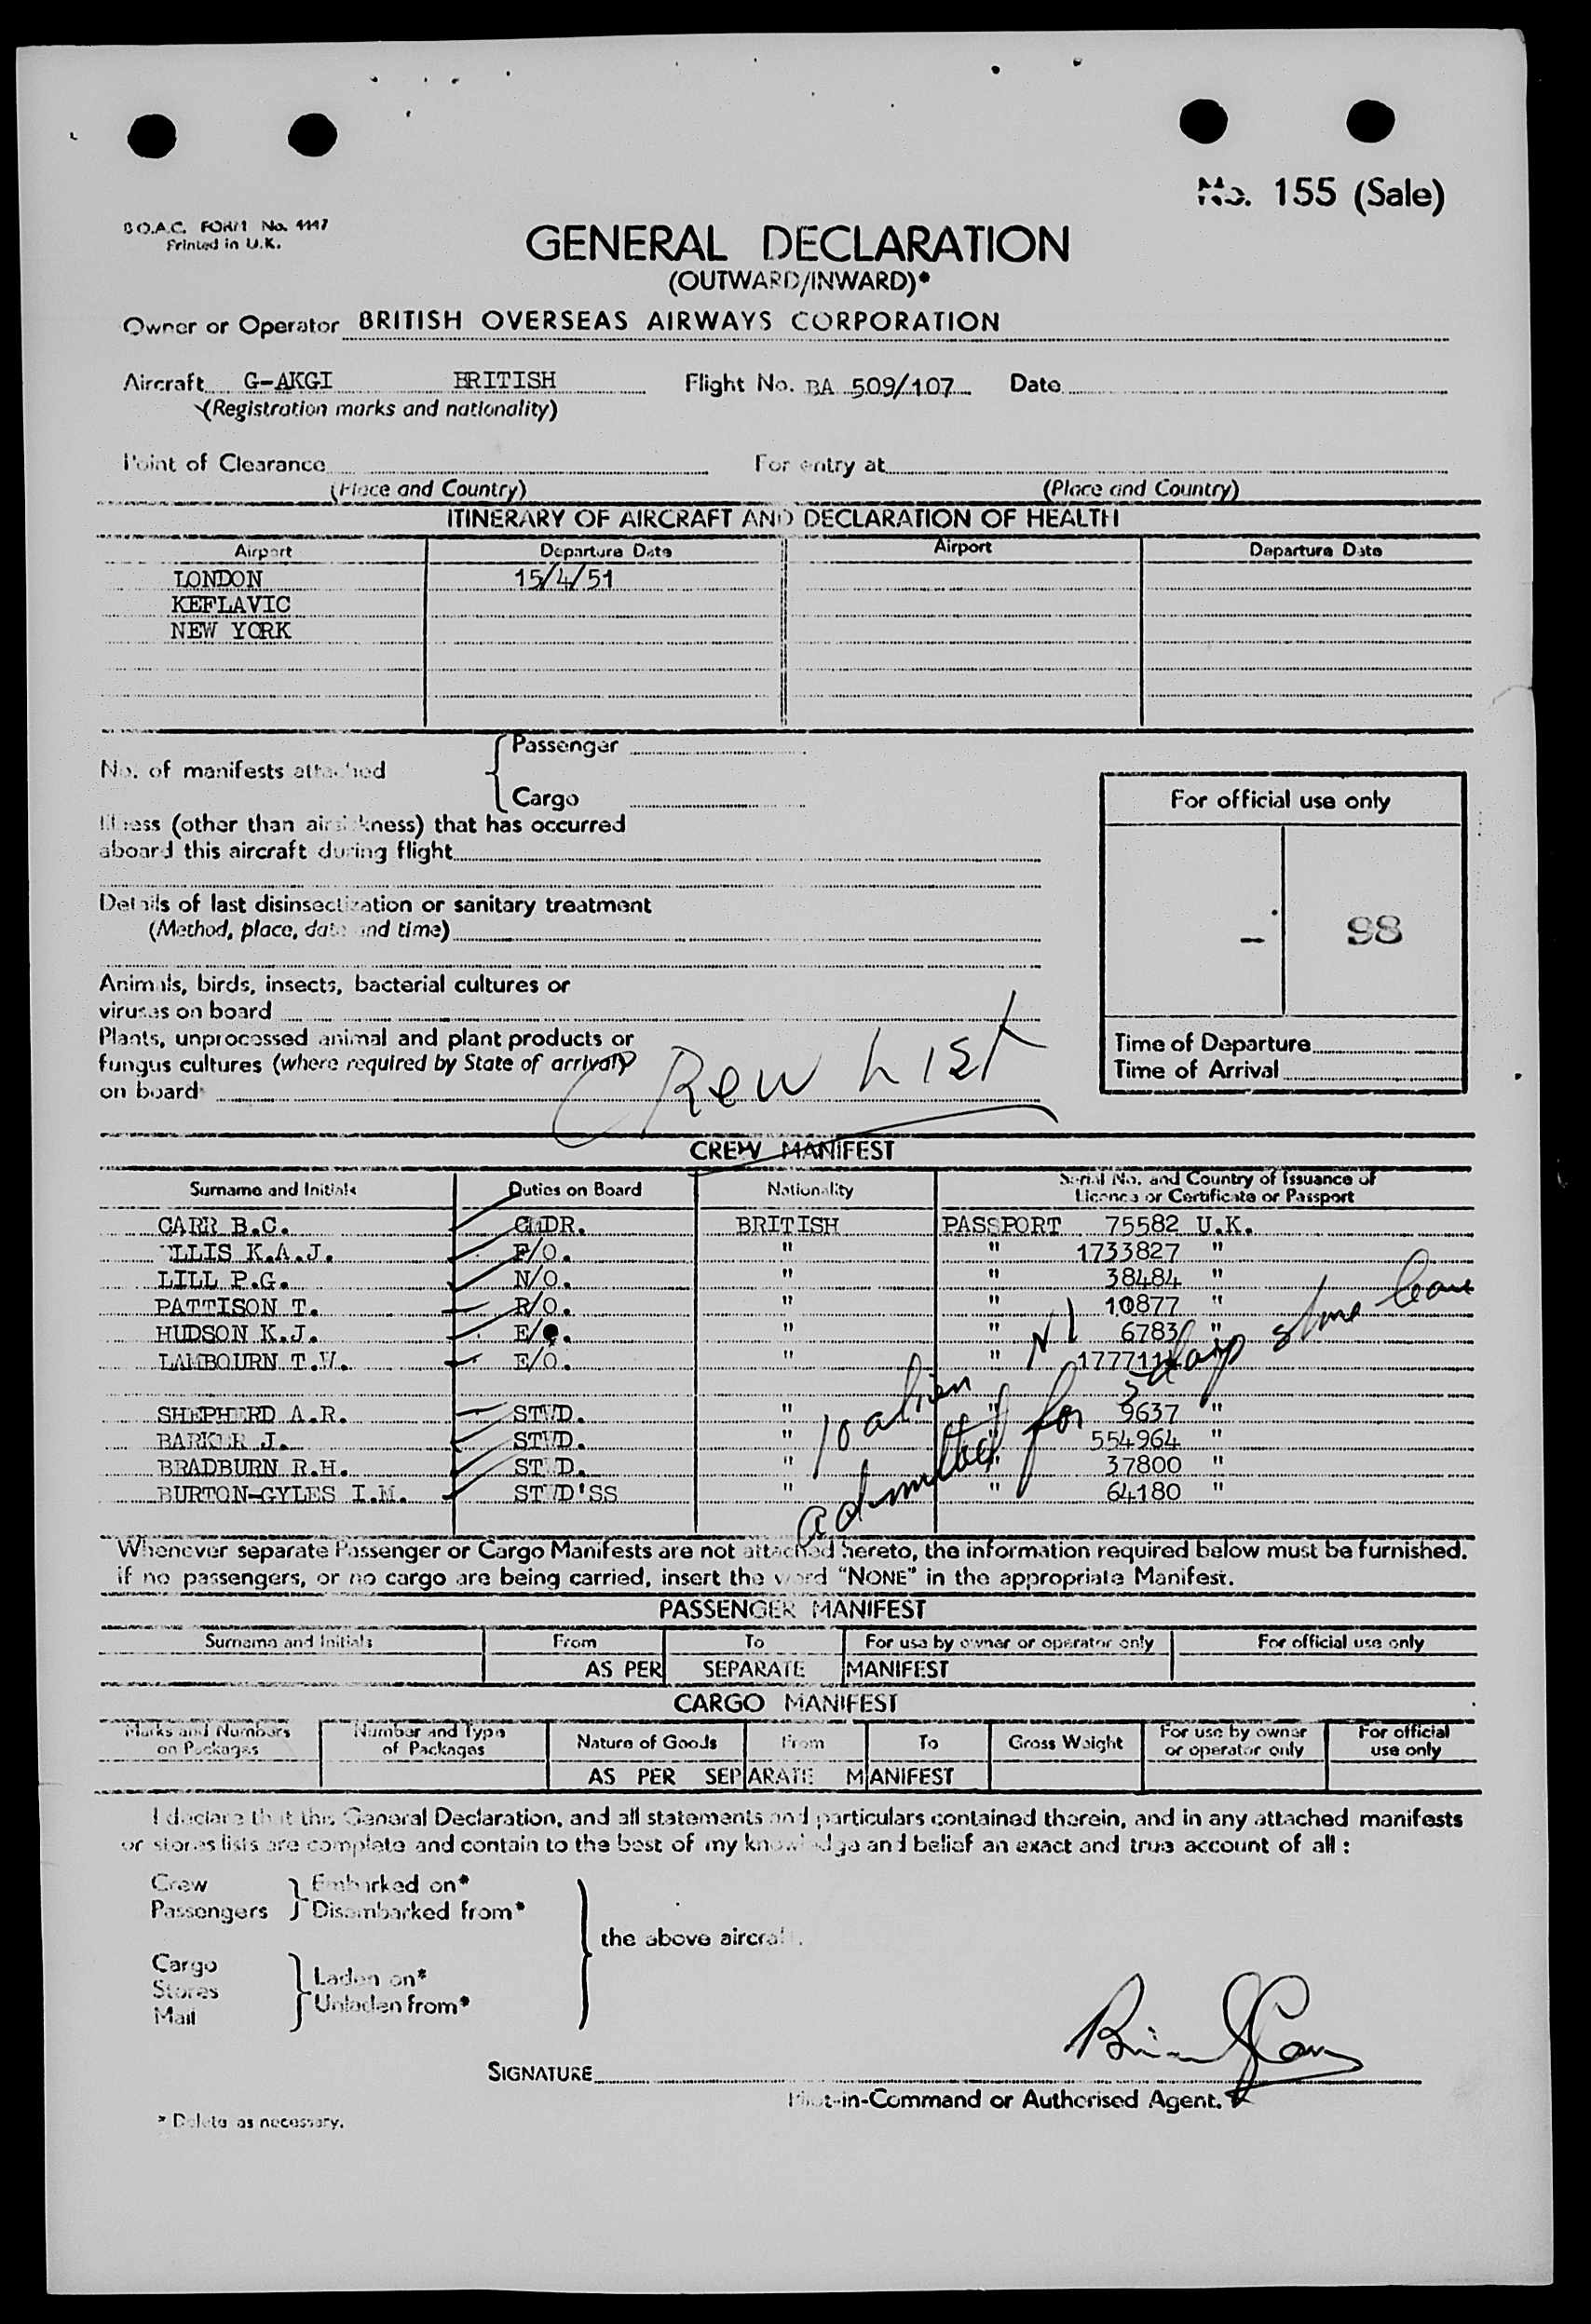 No. 155 (Sale)
B.O.A.C. FORM No. 4447
Printed in U.K.
GENERAL DECLARATION
(OUTWARD/INWARD)*
Owner or Operator BRITISH OVERSEAS AIRWAYS CORPORATION
Aircraft G-AKGI BRITISH Flight No. BA 509/107 Date
(Registration marks and nationality)
Point of Clearance For entry at
(Place and Country) (Place and Country)
ITINERARY OF AIRCRAFT AND DECLARATION OF HEALTH
Airport Departure Date Airport Departure Date
LONDON 15/4/51
KEFLAVIC
NEW YORK
No. of manifests attached
Passenger
Cargo
Illness (other than airsickness) that has occurred
aboard this aircraft during flight
Details of last disinsectization or sanitary treatment
(Method, place, date and time)
Animals, birds, insects, bacterial cultures or
viruses on board
Plants, unprocessed animal and plant products or
fungus cultures (where required by State of arrival)
on board
For official use only
- 98
Time of Departure
Time of Arrival
Crew List
CREW MANIFEST
Surname and Initials Duties on Board Nationality Serial No. and Country of Issuance of
Licence or Certificate or Passport
CARR B.C. CMDR. BRITISH PASSPORT 75582 U.K.
ELLIS K.A.J. F/O. " " 1733827 "
LILL P.G. N/O. " " 38484 "
PATTISON T. R/O. " " 10877 "
HUDSON K.J. E/O. " " 6783 "
LAMBOURN T.W. E/O. " "
SHEPHERD A.R. STWD. " " 9637 "
BARKER J. STWD. " " 554964 "
BRADBURN R.H. STWD. " " 37800 "
BURTON-GYLES I.M. STWD'SS " " 64180 "
10 alien
admitted for days shore leave
Whenever separate Passenger or Cargo Manifests are not attached hereto, the information required below must be furnished.
If no passengers, or no cargo are being carried, insert the word "NONE" in the appropriate Manifest.
PASSENGER MANIFEST
Surname and Initials From To For use by owner or operator only For official use only
AS PER SEPARATE MANIFEST
CARGO MANIFEST
Marks and Numbers on Packages Number and Type of Packages Nature of Goods From To Gross Weight For use by owner or operator only For official use only
AS PER SEPARATE MANIFEST
I declare that this General Declaration, and all statements and particulars contained therein, and in any attached manifests
or stores lists are complete and contain to the best of my knowledge and belief an exact and true account of all :
Crew
Passengers
Embarked on*
Disembarked from*
the above aircraft.
Cargo
Stores
Mail
Laden on*
Unladen from*
SIGNATURE Brian Carr
Pilot-in-Command or Authorised Agent.
* Delete as necessary.